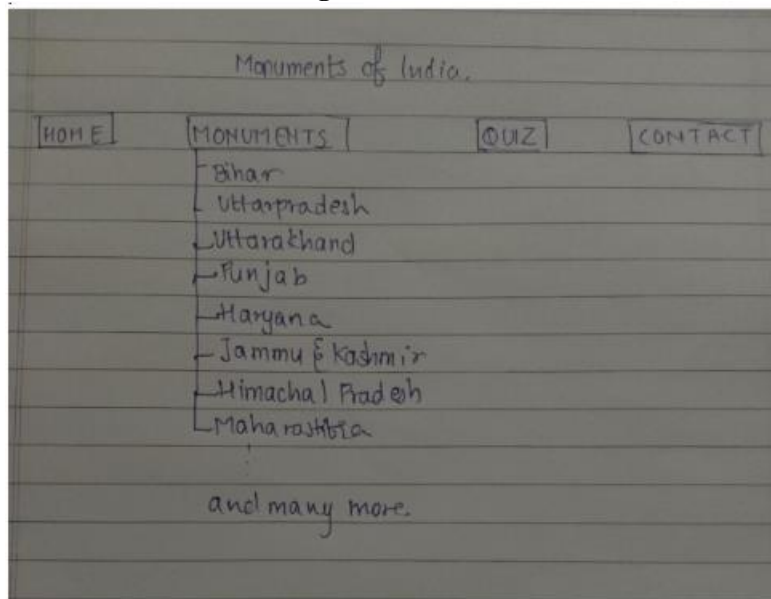 Monuments of India.
HOME MONUMENTS QUIZ CONTACT
Bihar
Uttarpradesh
Uttarakhand
Punjab
Haryana
Jammu & Kashmir
Himachal Pradesh
Maharashtra
and many more.